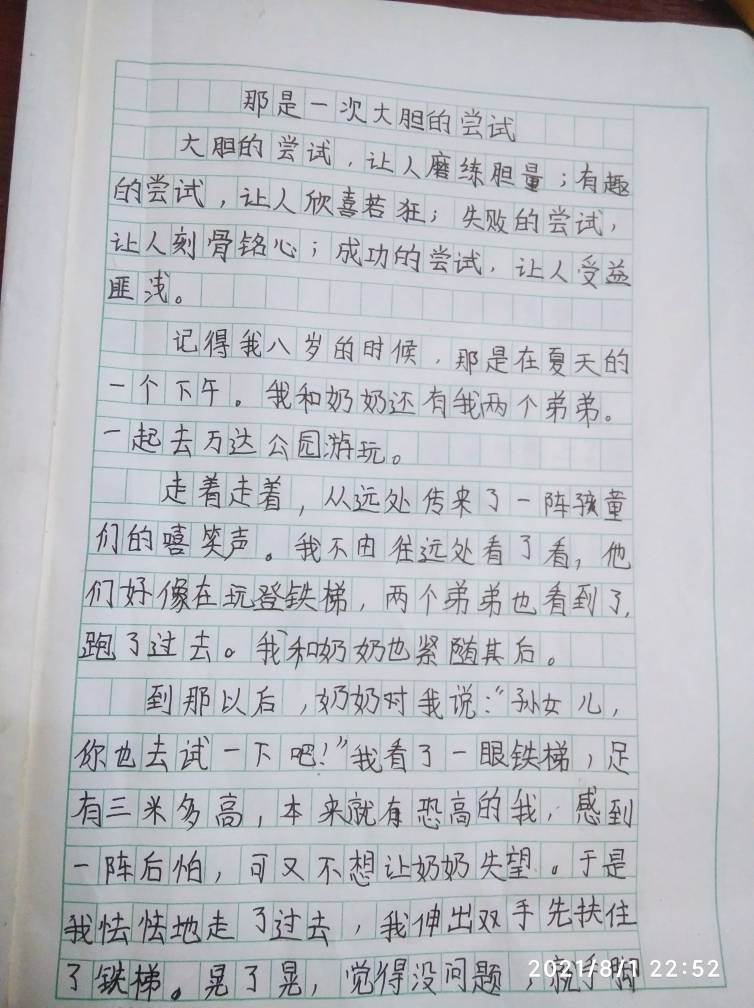 那是一次大胆的尝试
大胆的尝试，让人磨练胆量；有趣
的尝试，让人欣喜若狂；失败的尝试，
让人刻骨铭心；成功的尝试，让人受益
匪浅。
记得我八岁的时候，那是在夏天的
一个下午。我和奶奶还有我两个弟弟。
一起去万达公园游玩。
走着走着，从远处传来了一阵孩童
们的嘻笑声。我不由往远处看了看，他
们好像在玩登铁梯，两个弟弟也看到了，
跑了过去。我和奶奶也紧随其后。
到那以后，奶奶对我说：“孙女儿，
你也去试一下吧！”我看了一眼铁梯，足
有三米多高，本来就有恐高的我，感到
一阵后怕，可又不想让奶奶失望。于是
我怯怯地走了过去，我伸出双手先扶住
了铁梯。晃了晃，觉得没问题，就手脚
2021/8/1 22:52